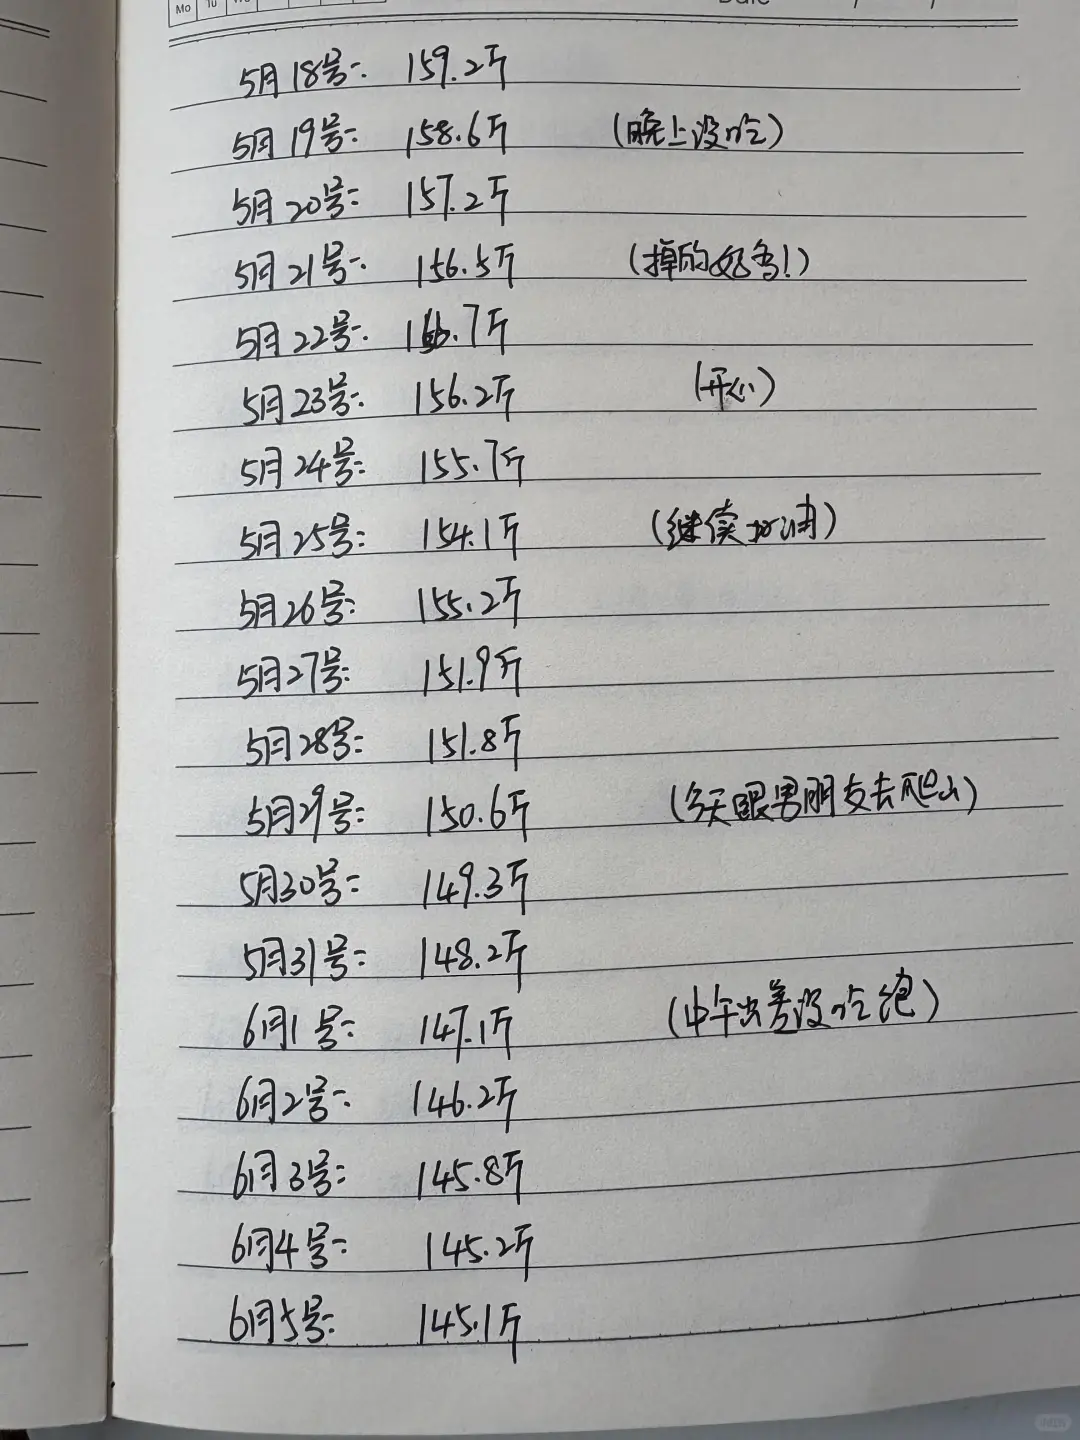 Mo Tu We
Date / /
5月18号: 159.2斤
5月19号: 158.6斤 (晚上没吃)
5月20号: 157.2斤
5月21号: 156.5斤 (掉的好多!)
5月22号: .7斤
5月23号: 156.2斤 (开心)
5月24号: 155.7斤
5月25号: 154.1斤 (继续加油)
5月26号: 155.2斤
5月27号: 151.9斤
5月28号: 151.8斤
5月29号: 150.6斤 (今天跟男朋友去爬山)
5月30号: 149.3斤
5月31号: 148.2斤
6月1号: 147.1斤 (中午出差没吃饱)
6月2号: 146.2斤
6月3号: 145.8斤
6月4号: 145.2斤
6月5号: 145.1斤